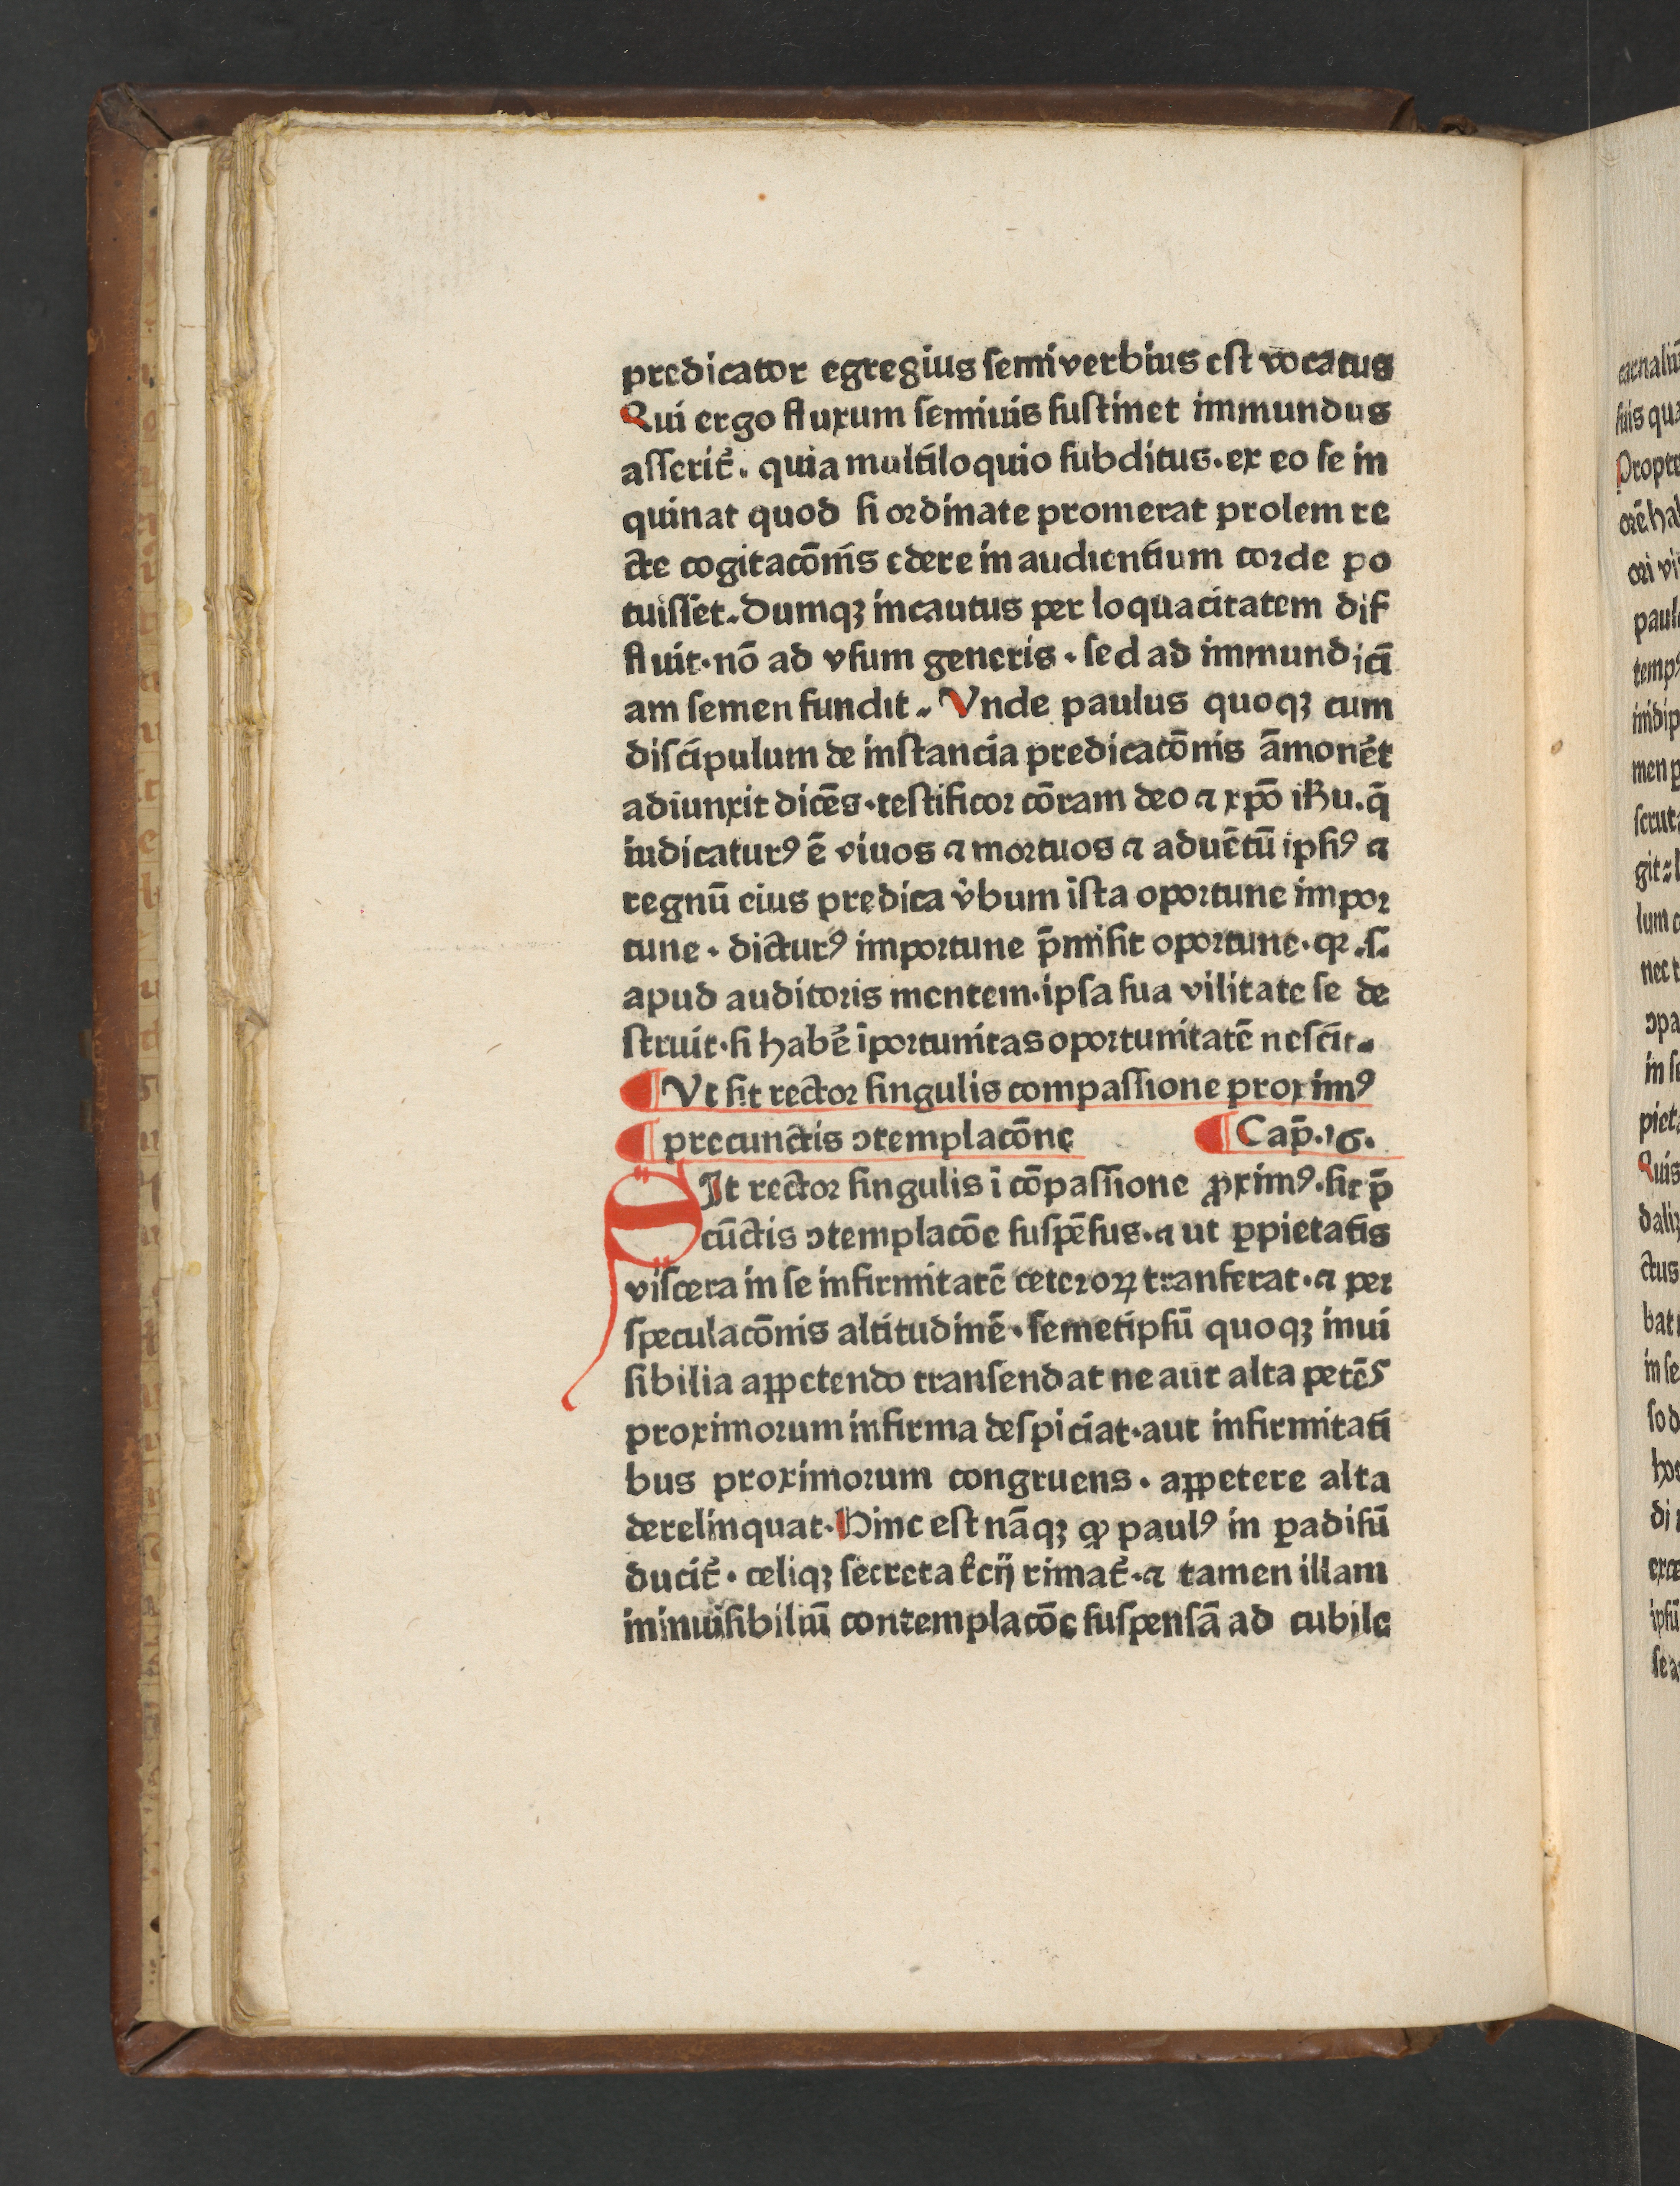 predicator egregius ſemiverbius eſt vocatus
Qui ergo fluxum ſeminis ſuſtinet immundus
aſſerit᷑. quia multiloquio ſubditus. ex eo ſe in
quinat quod ſi ordinate promerat prolem re
cte cogitacōnis edere in audientium corde po
tuiſſet. Dumqꝫ incautus per loquacitatem dif
fluit. nō ad vſum generis. ſed ad immundici
am ſemen fundit. Vnde paulus quoqꝫ cum
diſcipulum de inſtancia predicacōnis āmonēt
adiunxit dicēs. teſtificor cōram deo ⁊ xpō ihu. q̄
iudicaturꝰ ē viuos ⁊ mortuos ⁊ aduētū ipſiꝰ ⁊
regnū eius predica v̓bum iſta oportune impor
tune. dicturꝰ importune p̄miſit oportune. qꝛ .ſ.
apud auditoris mentem. ipſa ſua vilitate ſe de
ſtruit. ſi habe᷑ īportunitas oportunitatē neſcit.
¶ Vt ſit rector ſingulis compaſſione proximꝰ
¶ precunctis ꝯtemplacōne ¶ Cap̄. 16.
SIt rector ſingulis ī cōpaſſione ꝓximꝰ. ſit p̄
cūctis ꝯtemplacōe ſuſpēſus. ⁊ ut ꝑpietatis
viſcera in ſe infirmitatē ceteroꝝ tranſferat. ⁊ per
ſpeculacōnis altitudinē. ſemetipſū quoqꝫ inui
ſibilia appetendo tranſendat ne aut alta petēs
proximorum infirma deſpiciat. aut infirmitati
bus proximorum congruens. appetere alta
derelinquat. Hinc eſt nāqꝫ ꝙ paulꝰ in ꝑadiſū
ducit᷑. celiqꝫ ſecreta t̓cij rimat᷑. ⁊ tamen illam
ininuiſibiliū contemplacōe ſuſpenſā ad cubile